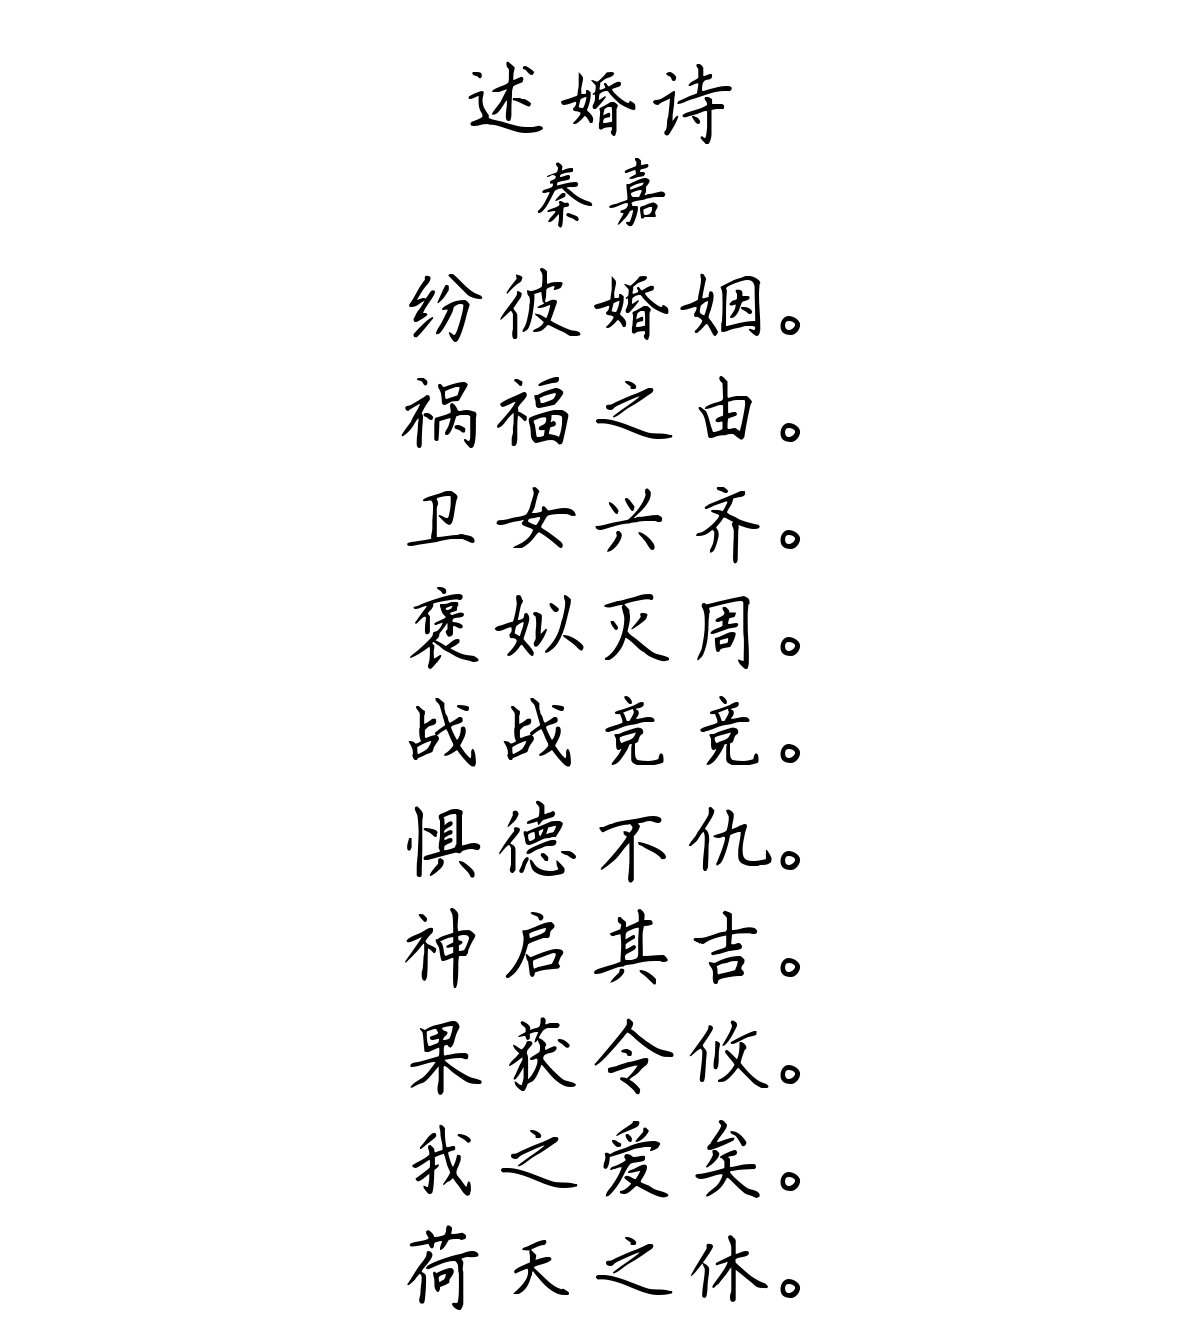 述婚诗
秦嘉
纷彼婚姻。
祸福之由。
卫女兴齐。
褒姒灭周。
战战竞竞。
惧德不仇。
神启其吉。
果获令攸。
我之爱矣。
荷天之休。